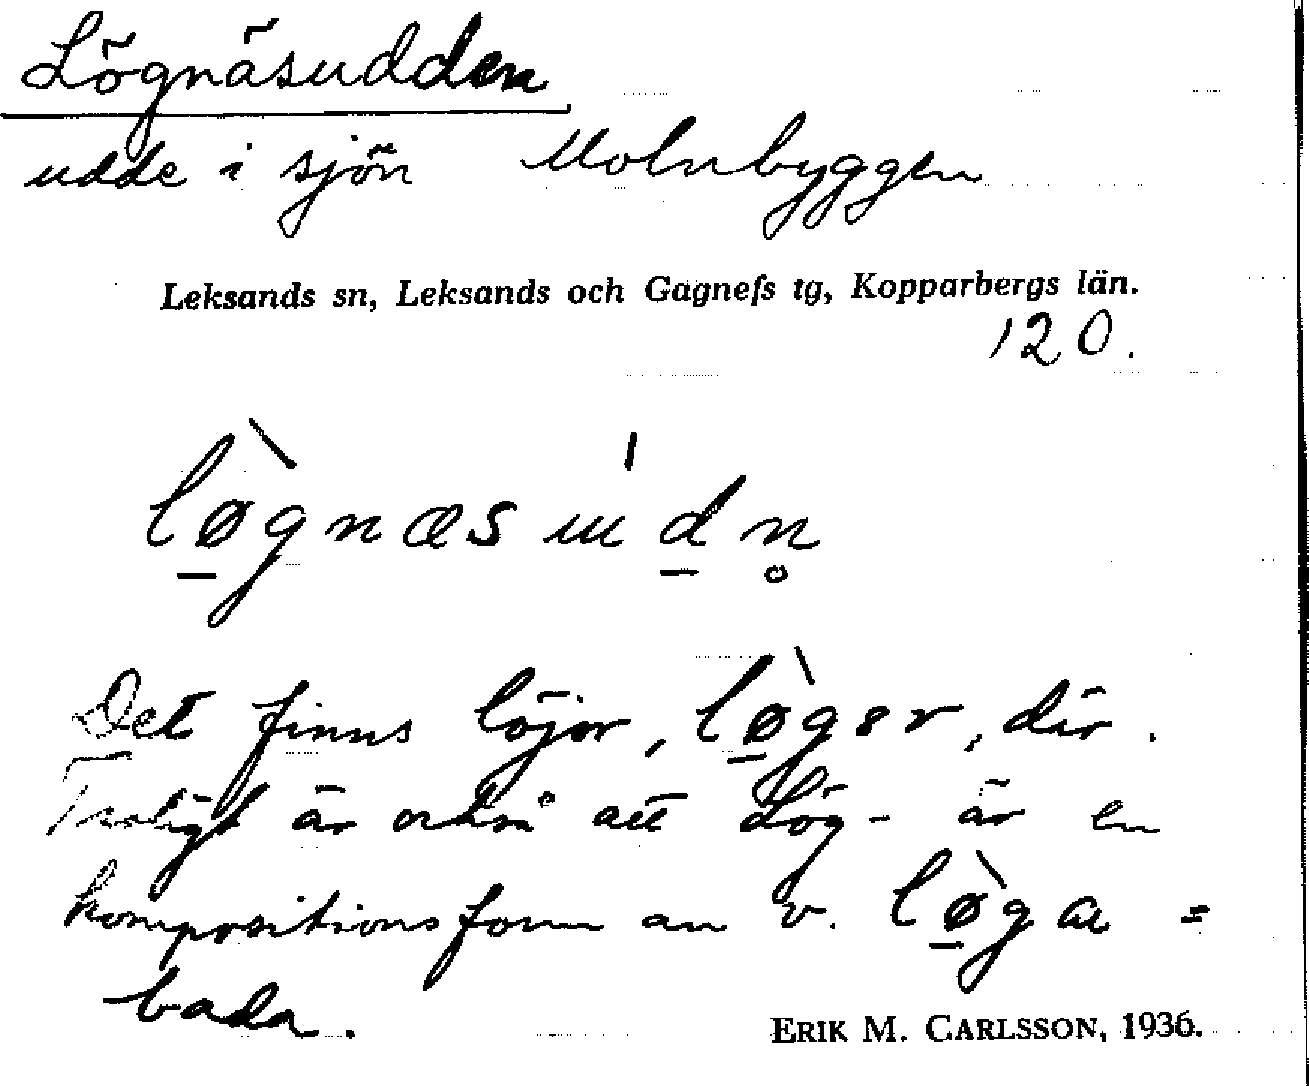 Lögnäsudden
udde i sjön Molnbyggen
Leksands sn, Leksands och Gagnefs tg, Kopparbergs län.
120.
lø̠̀gnæsu̍d̠n̥
Det finns löjor, lø̠̀gər, där.
Troligt är också att Lög- är en
kompositionsform av v. lø̠̀ga =
bada.
ERIK M. CARLSSON, 1936.